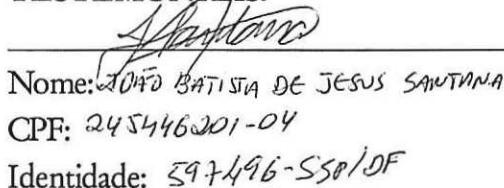 Nome: JOÃO BATISTA DE JESUS SANTANA
CPF: 245446201-04
Identidade: 597496-SSP/DF